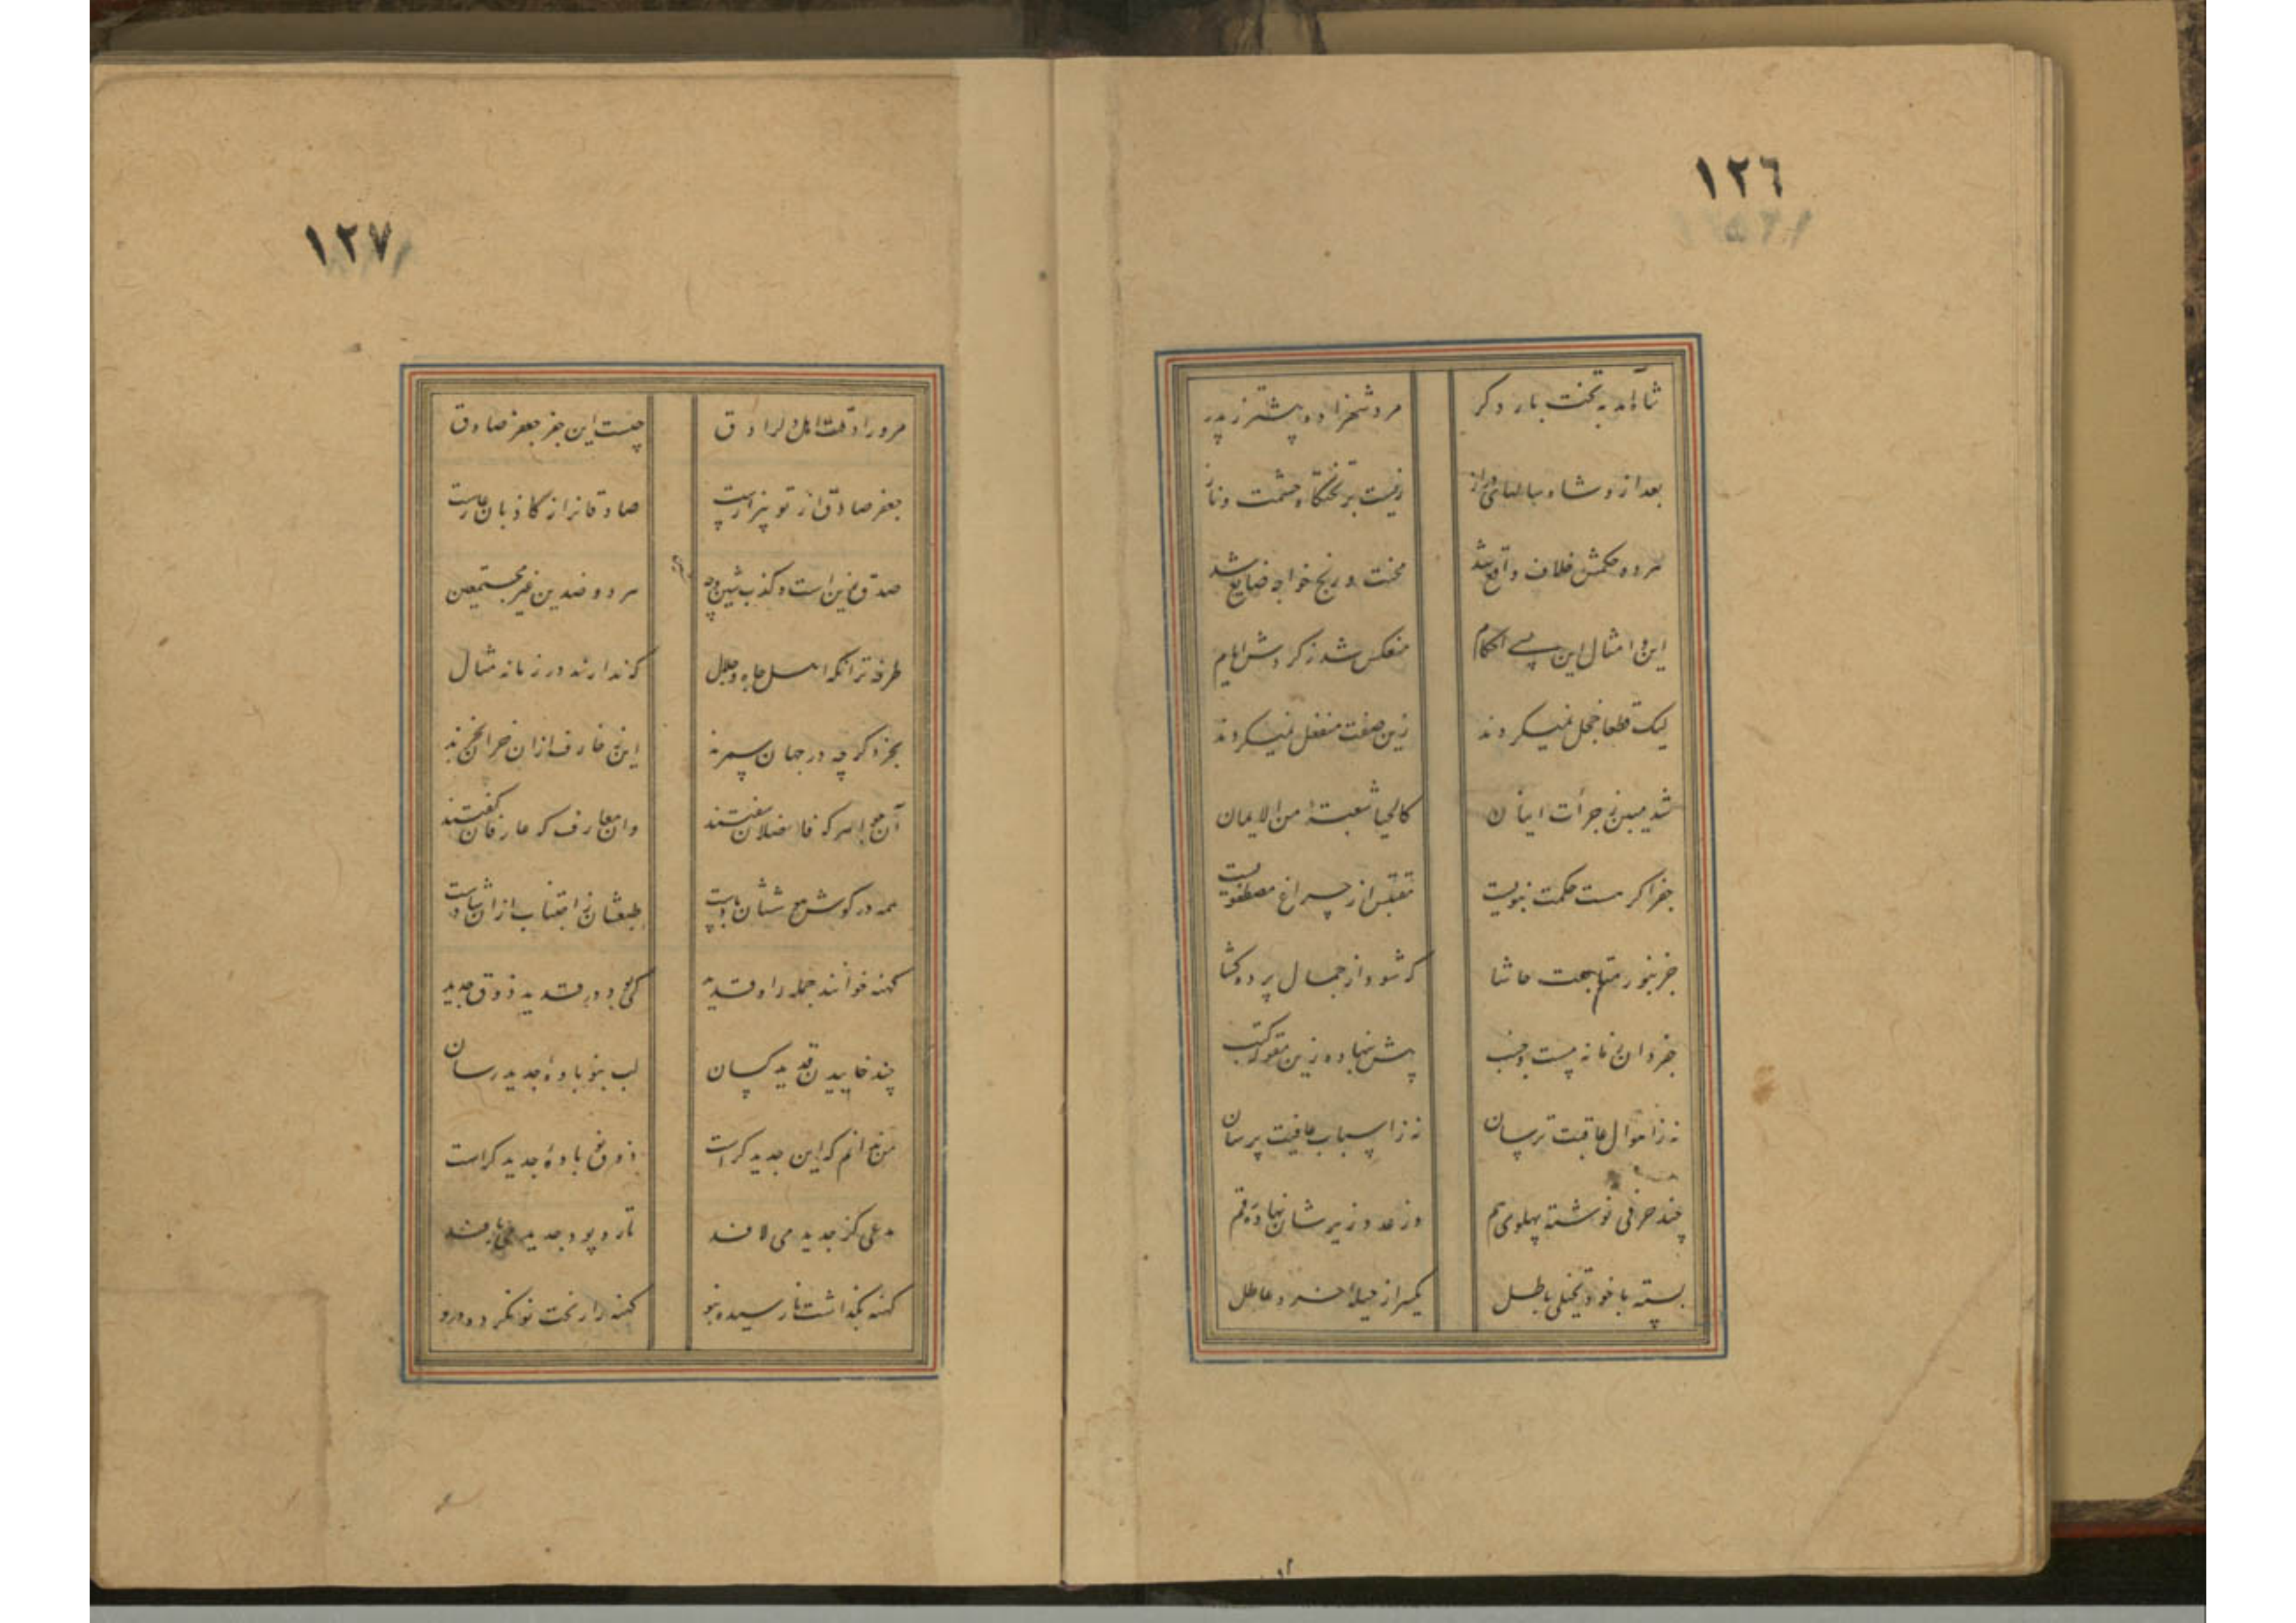 ١٢٦
شاه آمد به تخت بار دگر
مرد شهزاده پیشتر ز پدر
بعد ازو شاه سالهای دراز
زیست بر تختگاه حشمت و ناز
هر ده حکمش خلاف واقع شد
محنت و رنج خواجه ضایع شد
این و امثال این بسی احکام
منعکس شد ز گردش ایام
لیک قطعا خجل نمیگردند
زین صفت منفعل نمیگردند
شد مبین ز جرأت ایشان
کالحیا شعبة من الایمان
جفر اگر هست حکمت نبویست
مقتبس از چراغ مصطفویست
جز بنور متابعت حاشا
که شود از جمال پرده گشا
جفردان زمانه چست و چسب
پیش نهاده زین مقوله کتب
نه ز اهوال عاقبت ترسان
نه ز اسباب عافیت پرسان
چند حرفی نوشته پهلوی هم
وز عدد زیرشان نهاده رقم
بسته با خود تخیلی باطل
یکسر از حیلهٔ خرد عاطل
١٢٧
چیست این جفر جعفر صادق
جعفر صادق از تو بیزارست
صادقانرا از کاذبان عارست
صدق زین است و کذب شین و چه
هر دو ضدین غیر مجتمعین
طرفه تر آنکه اهل جاه و جلال
که ندارند در زمانه مثال
بخرد گر چه در جهان سمرند
این زخارف ازان خران بخرند
آن جواهر که فاضلان سفتند
وان معارف که عارفان گفتند
همه در گوش هوششان بادست
طبعشان ز اجتناب ازان شادست
کهنه خوانند جمله را و قدید
کی بود در قدید ذوق جدید
چند خاییدن قدید کسان
لب بنو بادهٔ جدید رسان
من ندانم که این جدید کراست
ذوق بادهٔ جدید کراست
مدعی کز جدید می لافد
تار و پود جدید می بافد
کهنه بگذاشت نارسیده بنو
کهنه را رخت نو نکرده درو